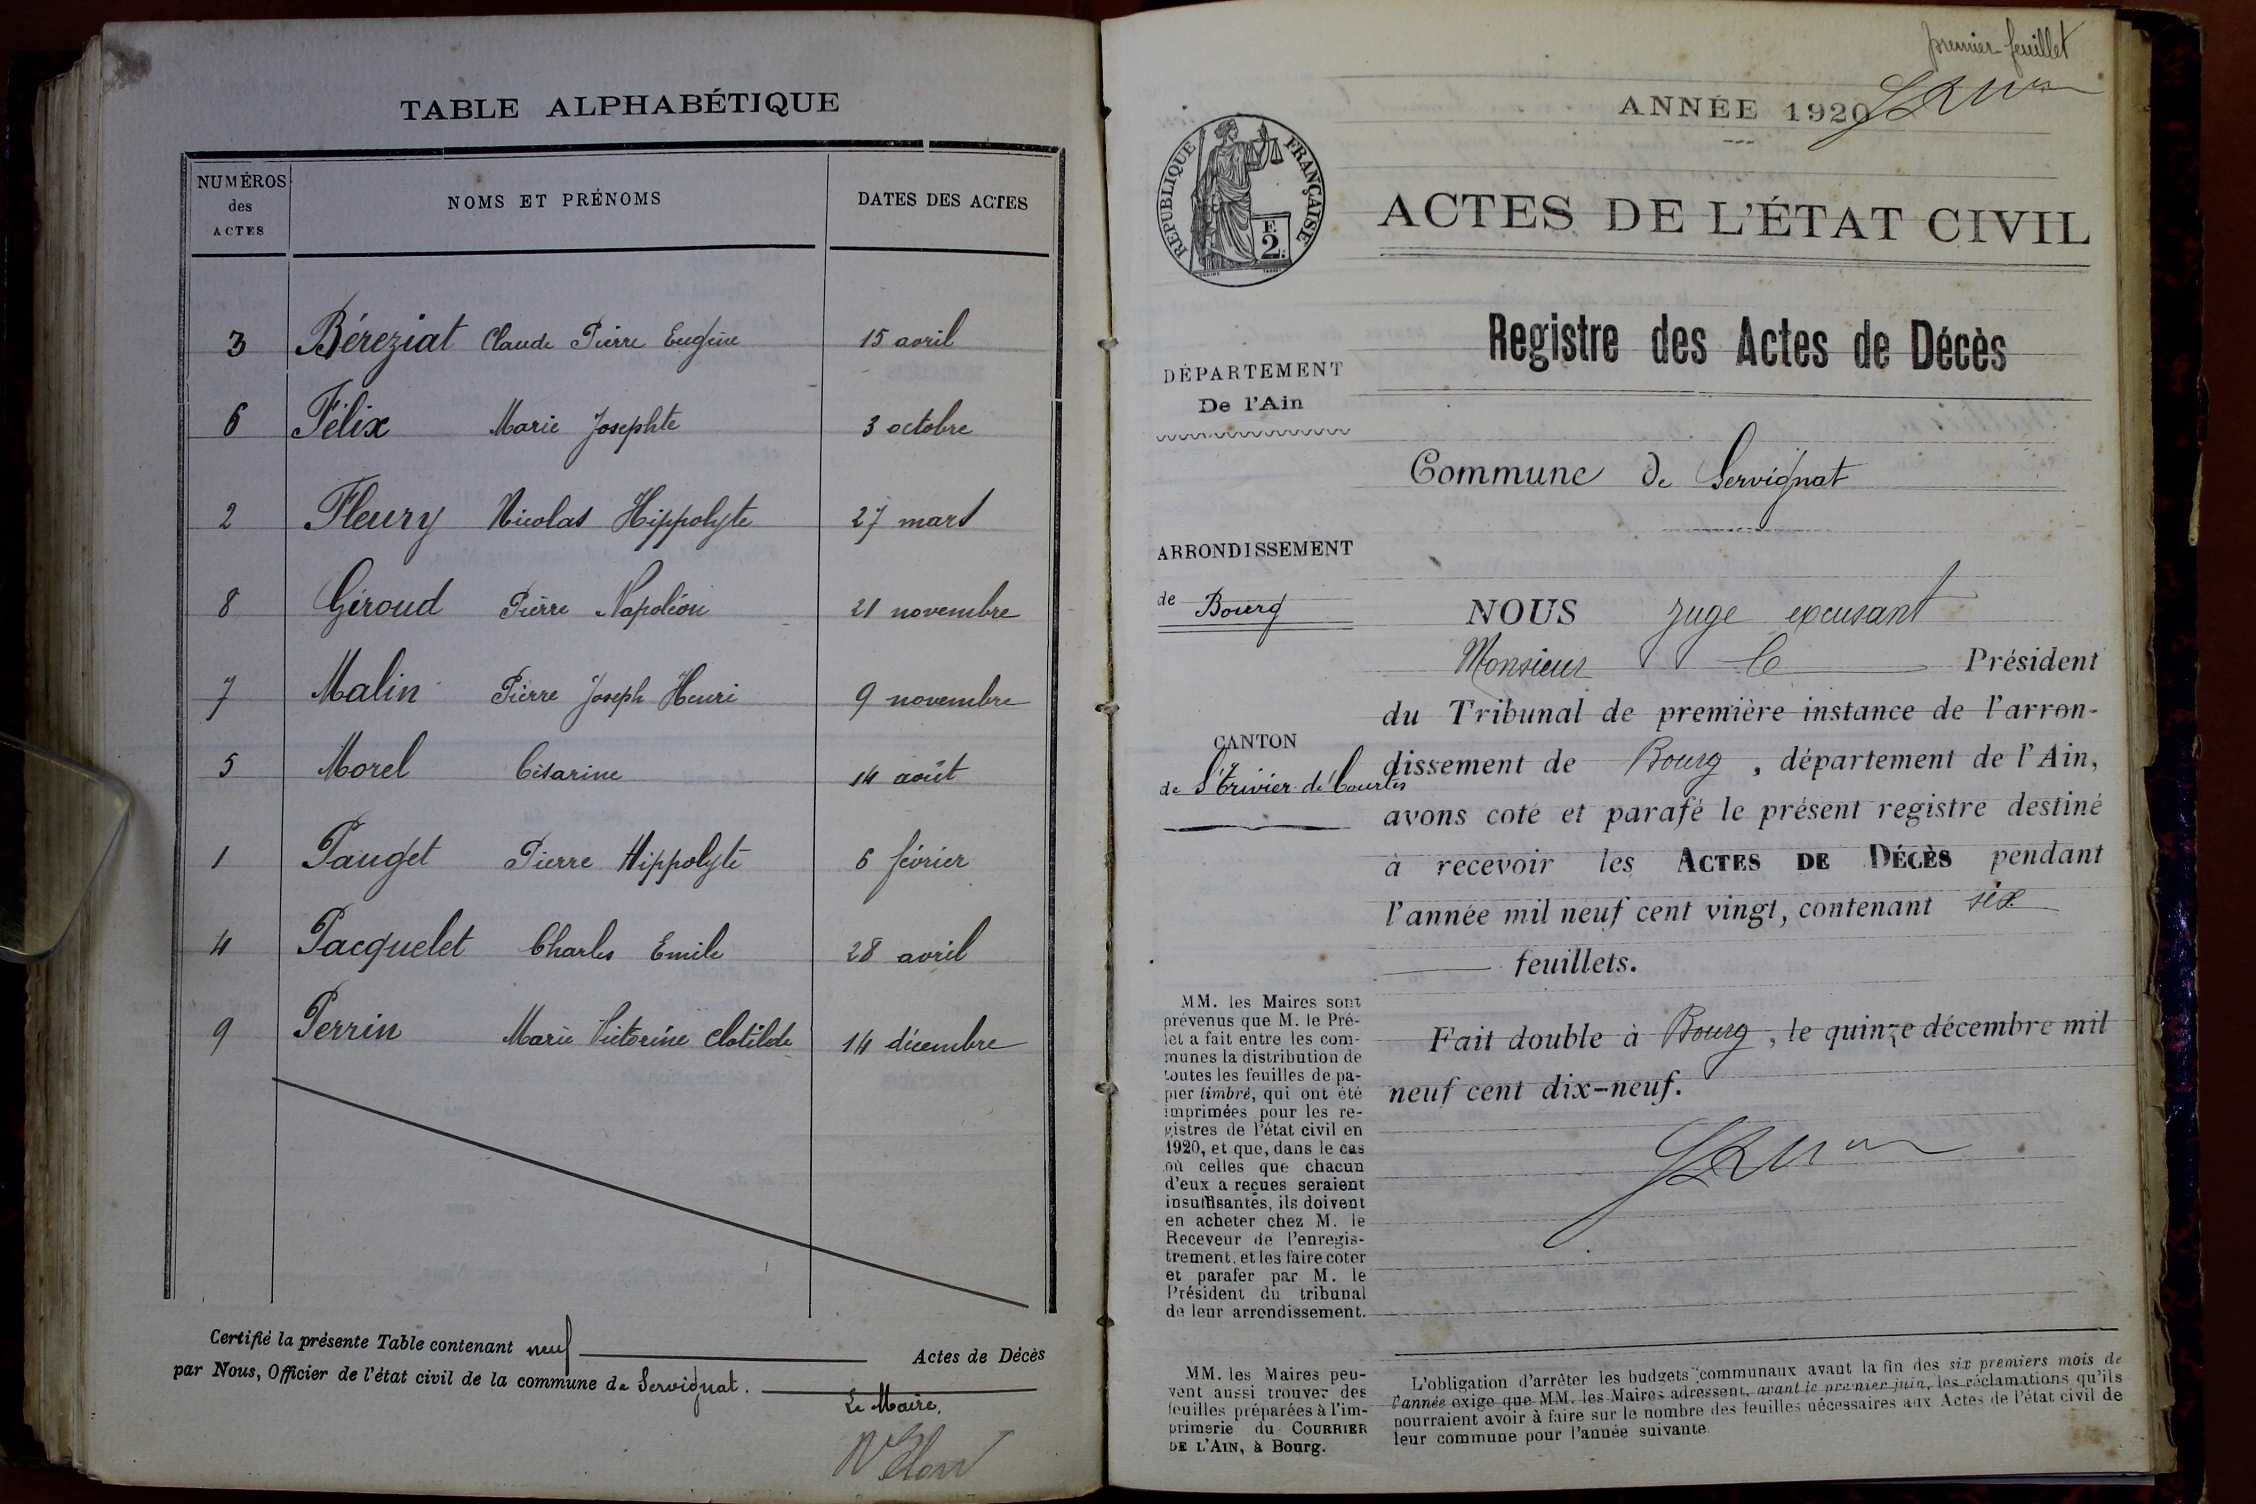 TABLE ALPHABÉTIQUE
NUMÉROS des ACTES NOMS ET PRÉNOMS DATES DES ACTES
3 Béreziat Claude Pierre Eugène 15 avril
6 Félix Marie Josephte 3 octobre
2 Fleury Nicolas Hippolyte 27 mars
8 Géroud Pierre Napoléon 21 novembre
7 Malin Pierre Joseph Henri 9 novembre
5 Morel Césarine 14 août
1 Pauget Pierre Hippolyte 6 février
4 Pacquelet Charles Emile 28 avril
9 Perrin Marie Victorine Clotilde 14 décembre
Certifié la présente Table contenant neuf Actes de Décès
par Nous, Officier de l'état civil de la commune de Servignat.
Le Maire,
premier feuillet
ANNÉE 1920
RÉPUBLIQUE FRANÇAISE
2F.
ACTES DE L'ÉTAT CIVIL
Registre des Actes de Décès
DÉPARTEMENT
De l'Ain
Commune de Servignat
ARRONDISSEMENT
de Bourg
CANTON
de St Trivier de Courtes
NOUS juge excusant
Monsieur le Président
du Tribunal de première instance de l'arron-
dissement de Bourg, département de l'Ain,
avons coté et parafé le présent registre destiné
à recevoir les ACTES DE DÉCÈS pendant
l'année mil neuf cent vingt, contenant six
feuillets.
Fait double à Bourg, le quinze décembre mil
neuf cent dix-neuf.
MM. les Maires sont
prévenus que M. le Pré-
fet a fait entre les com-
munes la distribution de
toutes les feuilles de pa-
pier timbré, qui ont été
imprimées pour les re-
gistres de l'état civil en
1920, et que, dans le cas
où celles que chacun
d'eux a reçues seraient
insuffisantes, ils doivent
en acheter chez M. le
Receveur de l'enregis-
trement, et les faire coter
et parafer par M. le
Président du tribunal
de leur arrondissement.
MM. les Maires peu-
vent aussi trouver des
feuilles préparées à l'im-
primerie du COURRIER
DE L'AIN, à Bourg.
L'obligation d'arrêter les budgets communaux avant la fin des six premiers mois de
l'année exige que MM. les Maires adressent, avant le premier juin, les réclamations qu'ils
pourraient avoir à faire sur le nombre des feuilles nécessaires aux Actes de l'état civil de
leur commune pour l'année suivante.